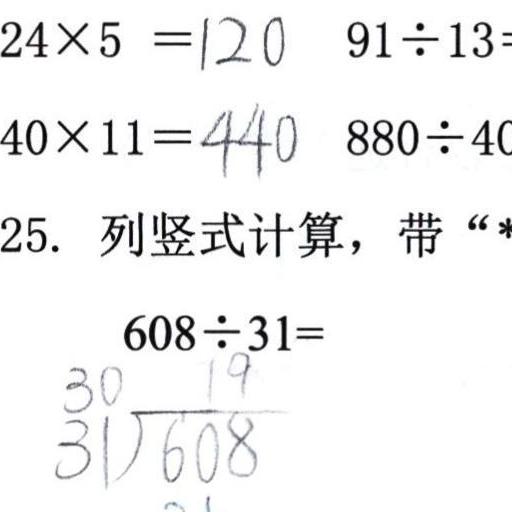 24×5 =120 91÷13=
40×11=440 880÷40
25. 列竖式计算，带“*
608÷31=
30 19
31)608